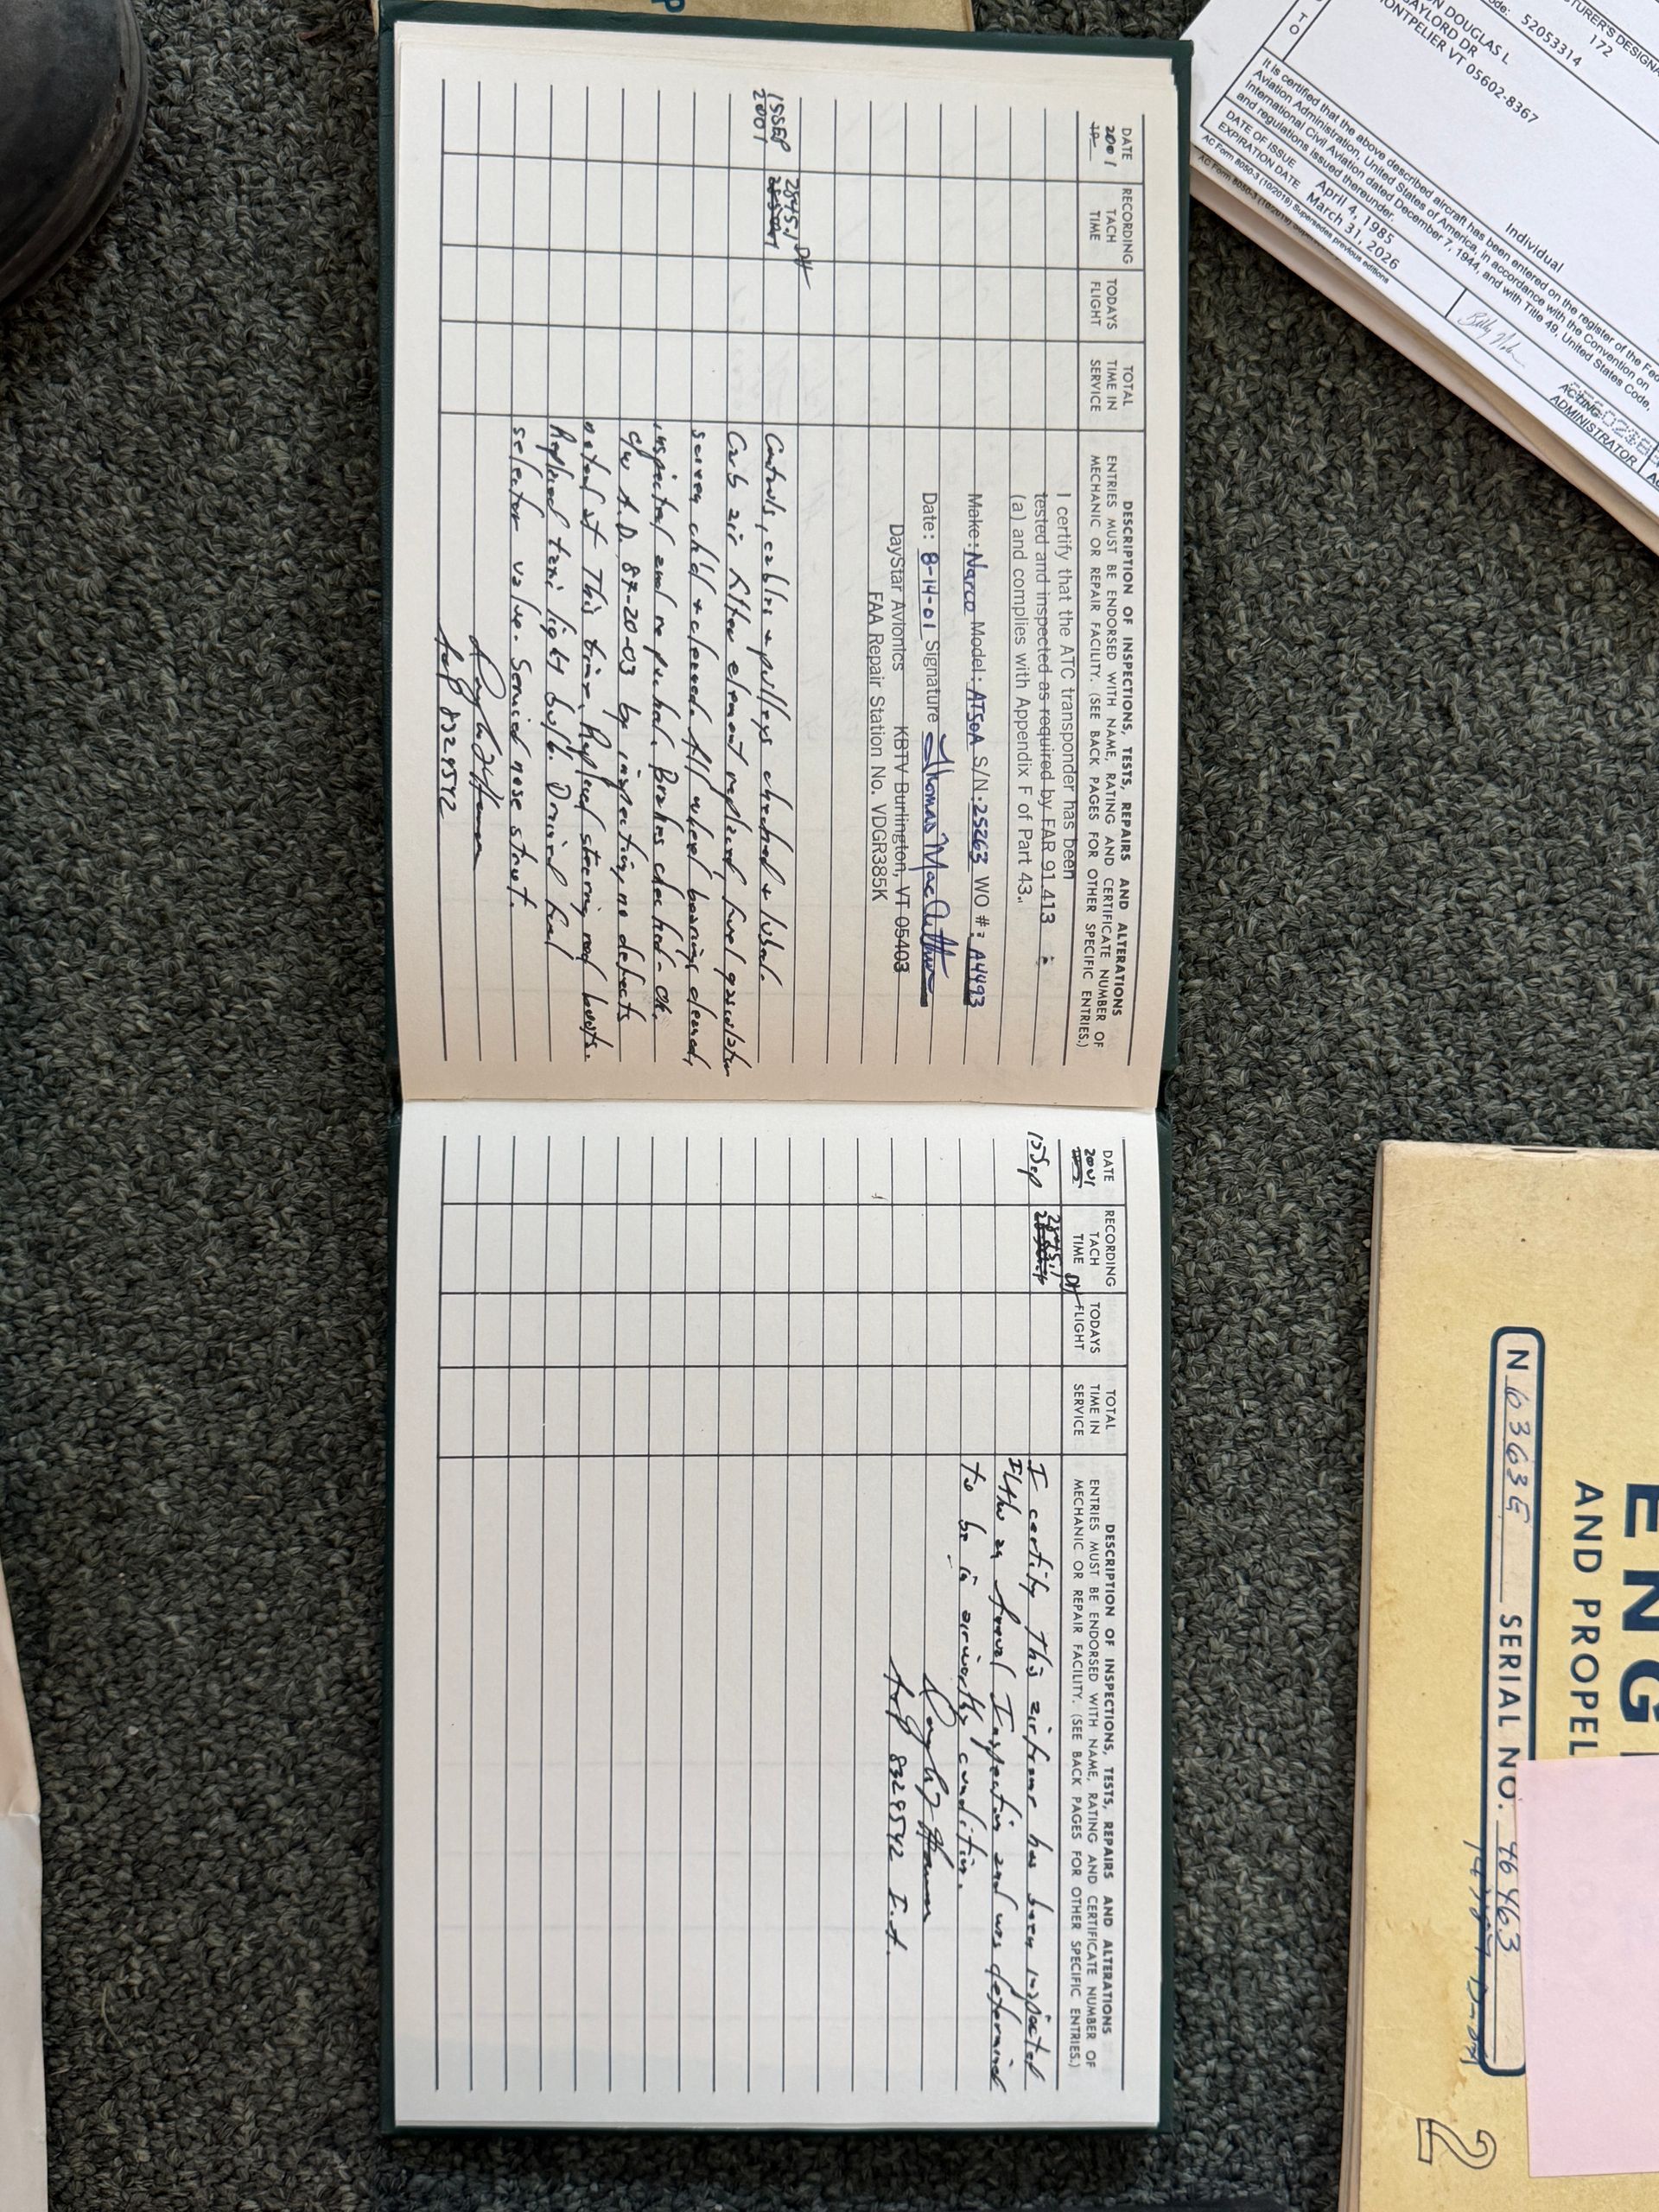 DATE
2001
19
RECORDING
TACH
TIME
TODAYS
FLIGHT
TOTAL
TIME IN
SERVICE
DESCRIPTION OF INSPECTIONS, TESTS, REPAIRS AND ALTERATIONS
ENTRIES MUST BE ENDORSED WITH NAME, RATING AND CERTIFICATE NUMBER OF
MECHANIC OR REPAIR FACILITY. (SEE BACK PAGES FOR OTHER SPECIFIC ENTRIES.)
I certify that the ATC transponder has been
tested and inspected as required by FAR 91.413
(a) and complies with Appendix F of Part 43.
Make: Narco Model: AT50A S/N: 25263 WO #: A4493
Date: 8-14-01 Signature Thomas MacArthur
DayStar Avionics KBTV Burlington, VT 05403
FAA Repair Station No. VDGR385K
15SEP
2001
2845.1 DH
Controls, cables & pulleys checked & lubed.
Carb air filter element replaced, fuel gascolator
screen chk'd & cleaned. All wheel bearings cleaned,
inspected and repacked. Brakes checked - OK.
c/w A.D. 87-20-03 by inspecting no defects
noted at this time. Replaced steering rod boots.
Replaced taxi light bulb. Drained fuel
selector valve. Serviced nose strut.
A&P 8329542
DATE
2001
RECORDING
TACH
TIME
TODAYS
FLIGHT
TOTAL
TIME IN
SERVICE
DESCRIPTION OF INSPECTIONS, TESTS, REPAIRS AND ALTERATIONS
ENTRIES MUST BE ENDORSED WITH NAME, RATING AND CERTIFICATE NUMBER OF
MECHANIC OR REPAIR FACILITY. (SEE BACK PAGES FOR OTHER SPECIFIC ENTRIES.)
15Sep
2845.1 DH
I certify this airframe has been inspected
IAW an Annual Inspection and was determined
to be in airworthy condition.
A&P 8329542 I.A.
172
52053314
DOUGLAS L
GAYLORD DR
MONTPELIER VT 05602-8367
TO
Individual
It is certified that the above described aircraft has been entered on the register of the
Aviation Administration, United States of America, in accordance with the Convention on
International Civil Aviation dated December 7, 1944, and with Title 49, United States Code,
and regulations issued thereunder.
DATE OF ISSUE April 4, 1985
EXPIRATION DATE March 31, 2026
ACTING
ADMINISTRATOR
AC Form 8050-3 (10/2019) Supersedes previous editions
ENG
AND PROPEL
N 6363E SERIAL NO. 46463
2